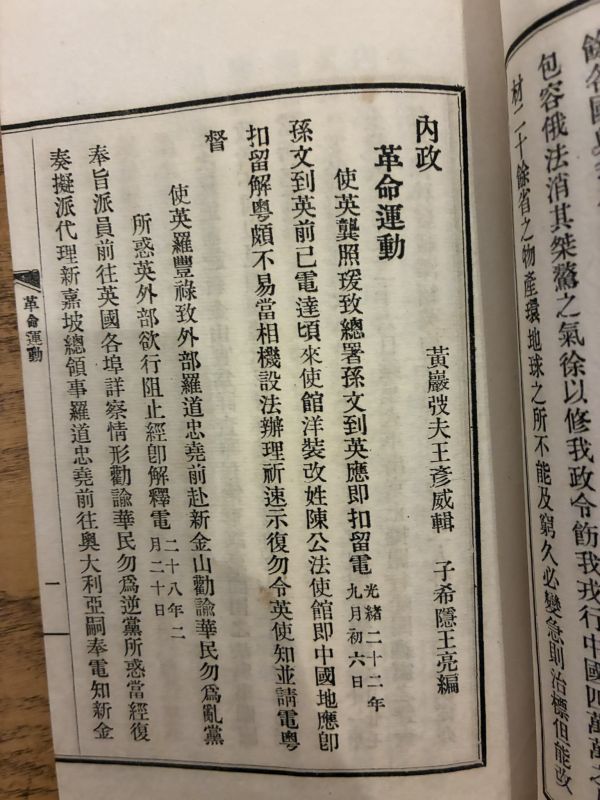 餘各國
包容俄法消其桀驁之氣徐以修我政令飭我戎行中國四萬萬之
材二十餘省之物產環地球之所不能及窮久必變急則治標但能改
內政 黃巖弢夫王彥威輯 子希隱王亮編
革命運動
使英龔照瑗致總署孫文到英應卽扣留電 光緒二十二年九月初六日
孫文到英前已電達頃來使館洋裝改姓陳公法使館卽中國地應卽
扣留解粵頗不易當相機設法辦理祈速示復勿令英使知並請電粵
督
使英羅豐祿致外部羅道忠堯前赴新金山勸諭華民勿爲亂黨
所惑英外部欲行阻止經卽解釋電 二十八年二月二十日
奉旨派員前往英國各埠詳察情形勸諭華民勿爲逆黨所惑當經復
奏擬派代理新嘉坡總領事羅道忠堯前往奧大利亞嗣奉電知新金
革命運動
一